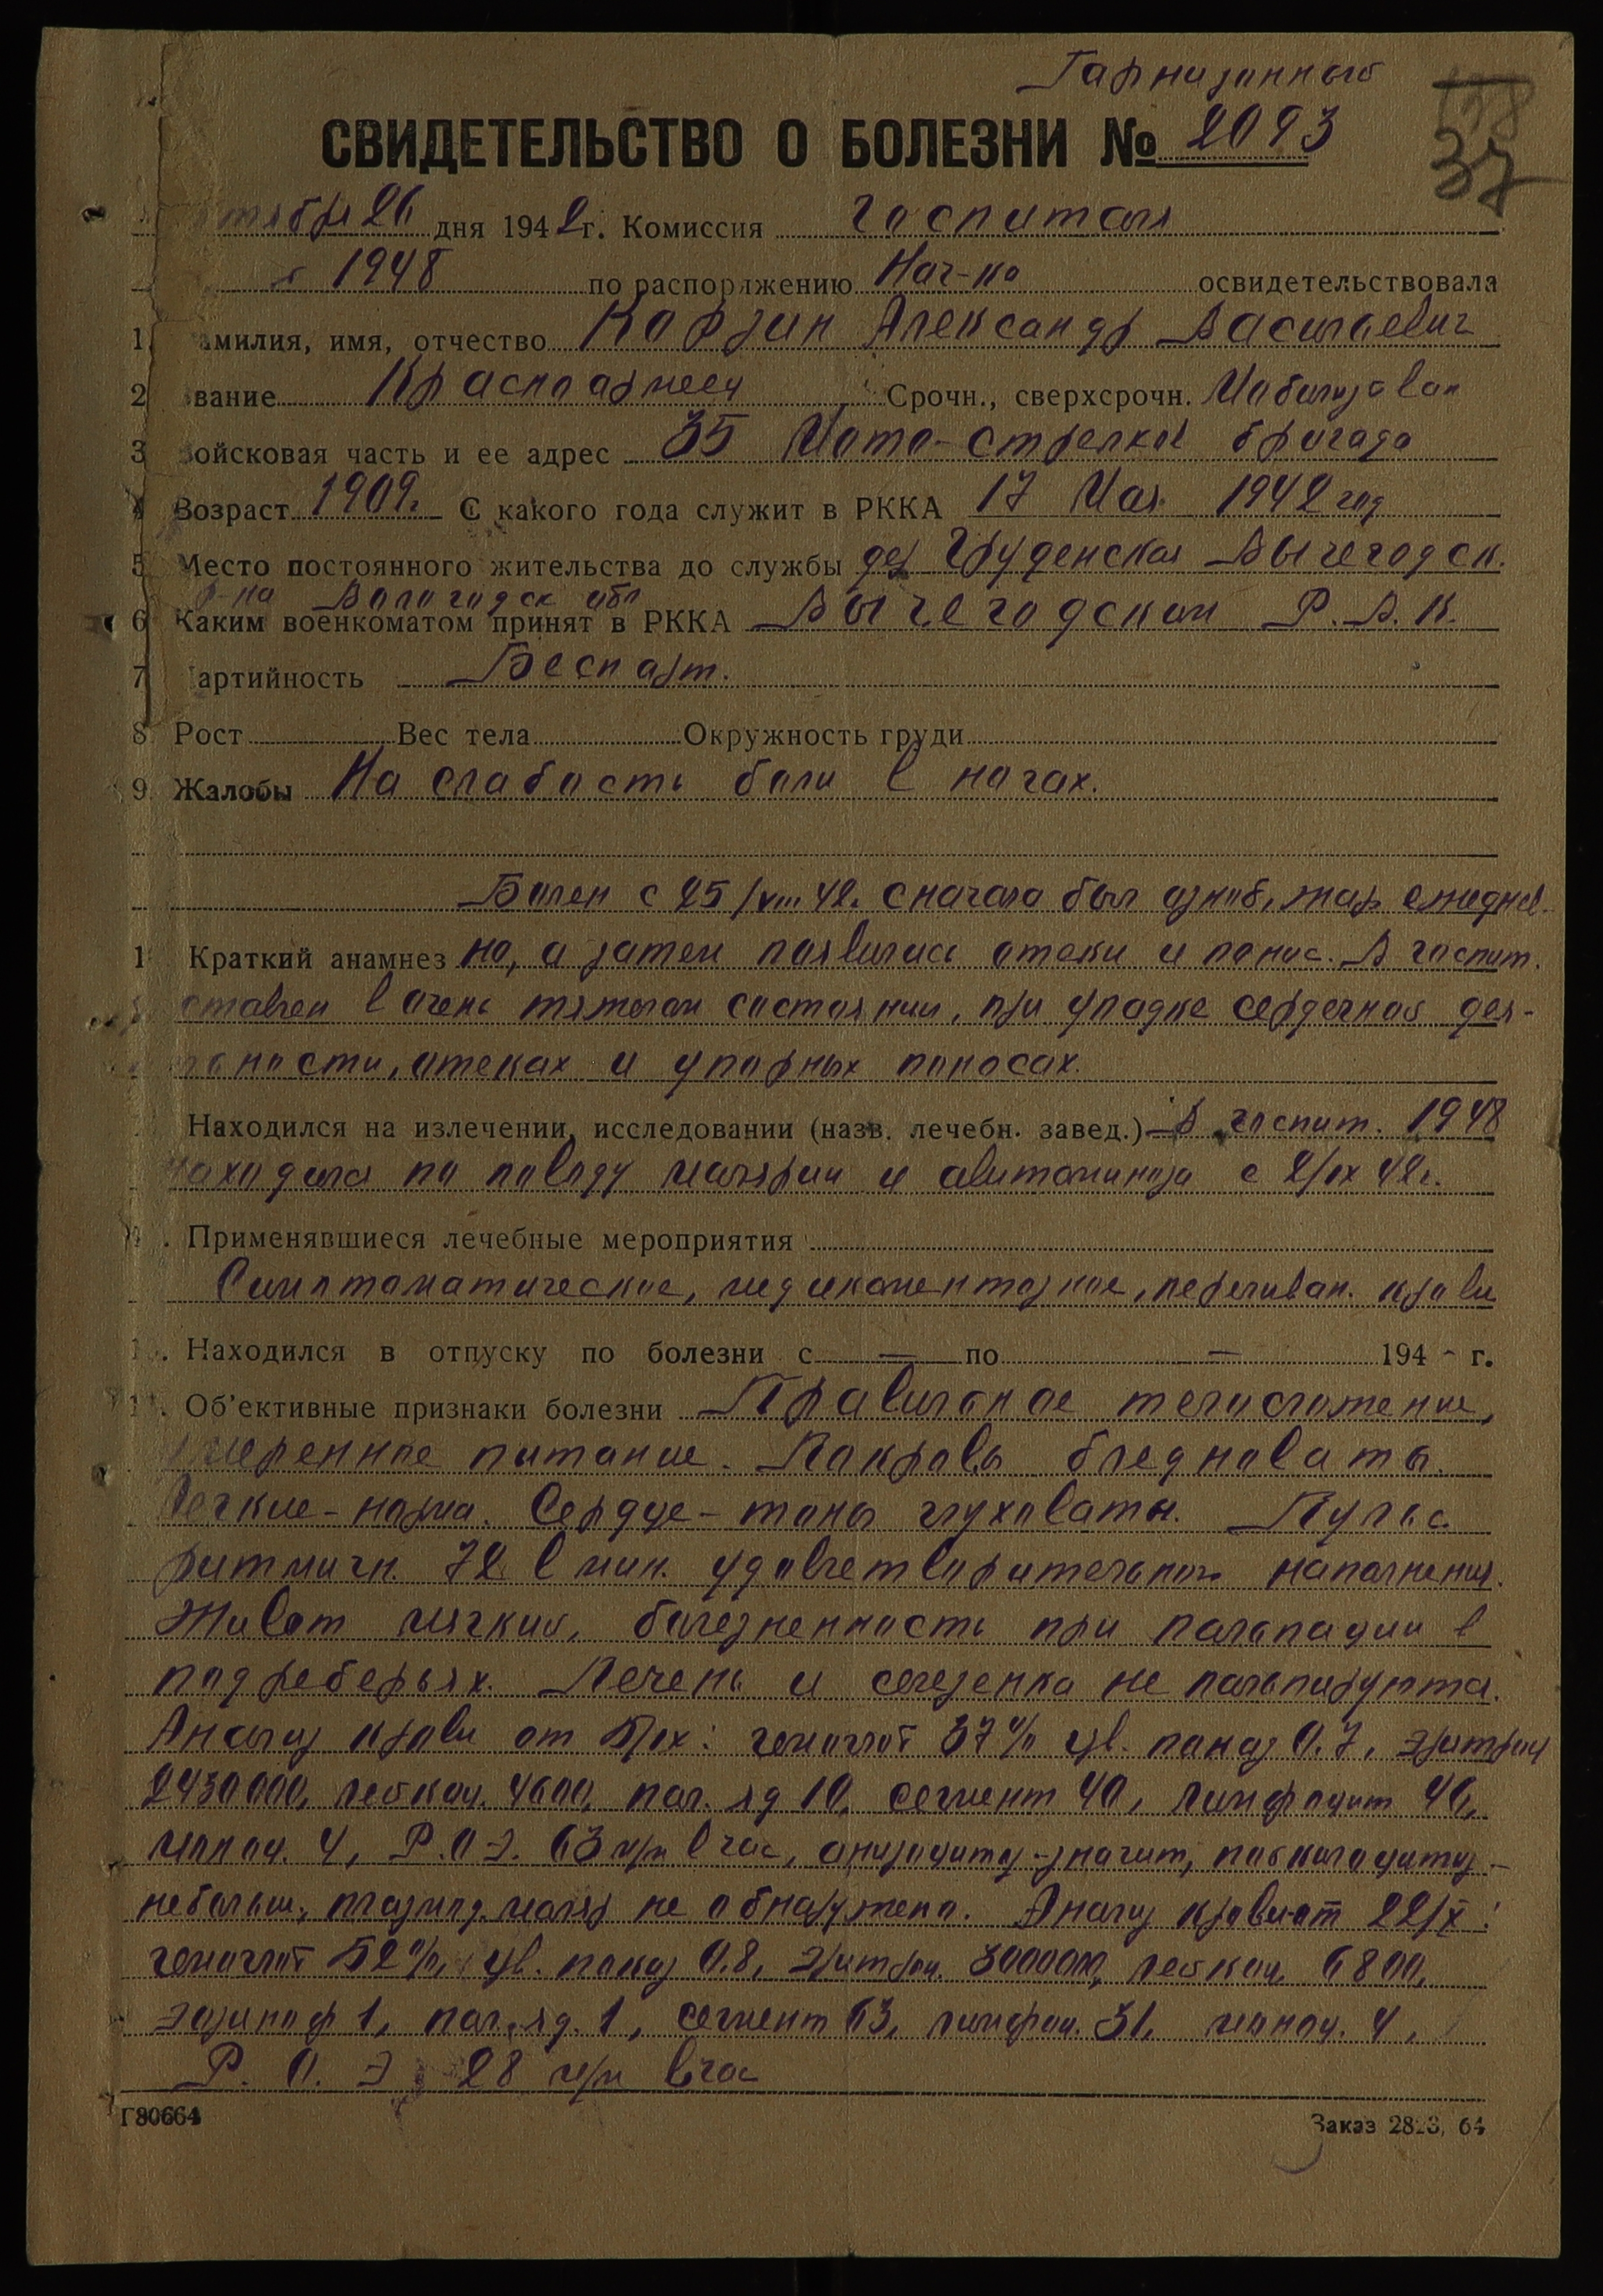 Гарнизонный
СВИДЕТЕЛЬСТВО О БОЛЕЗНИ № 2093
37
тября 26 дня 1942 г. Комиссия госпиталя
1948 по распоряжению Нач-ка освидетельствовала
1 амилия, имя, отчество Корзин Александр Васильевич
2 вание Красноармеец Срочн., сверхсрочн. Мобилизован
3 ойсковая часть и ее адрес 35 Мото-стрелков бригада
4 Возраст 1909г. С какого года служит в РККА 17 Мая 1942 год
5 Место постоянного жительства до службы дер. Груденская Вычегодск.
р-на Вологодск обл
6 Каким военкоматом принят в РККА Вычегодским Р.В.К.
7 артийность Беспарт.
8 Рост Вес тела Окружность груди
9. Жалобы На слабость боли в ногах.
Болен с 25/VIII 42. сначала был озноб, жар ежеднев-
1 Краткий анамнез но, а затем появились отеки и понос. В госпит.
ставлен в очень тяжелом состоянии, при упадке сердечной дея-
ности, отеках и упорных поносах.
Находился на излечении, исследовании (назв. лечебн. завед.) В госпит. 1948
находился по поводу малярии и авитаминоза с 2/IX 42г.
. Применявшиеся лечебные мероприятия
Симптоматическое, медикаментозное, переливан. крови
. Находился в отпуску по болезни с — по — 194 - г.
. Об'ективные признаки болезни Правильное телосложение,
умеренное питание. Покровы бледноваты.
Легкие - норма. Сердце - тоны глуховаты. Пульс
ритмичн. 72 в мин. удовлетворительного наполнения.
Живот мягкий, болезненность при пальпации в
подреберьях. Печень и селезенка не пальпируются.
Анализ крови от 5/IX: гемоглоб 37% цв. показ 0.7, эритроц
2430000, лейкоц. 4600, пал. яд 10, сегмент 40, лимфоцит 46,
моноц. 4, Р.О.Э. 63 м/м в час, анизоцитоз-значит, пойкилоцитоз-
небольш., плазмод. маляр не обнаружено. Анализ крови от 22/X:
гемоглоб 52%, цв. показ 0.8, эритроц. 3000000, лейкоц. 6800,
эозиноф 1, пал. яд. 1, сегмент 63, лимфоц. 31, моноц. 4,
Р. О. Э 28 м/м в час
Г80664
Заказ 28 3, 64